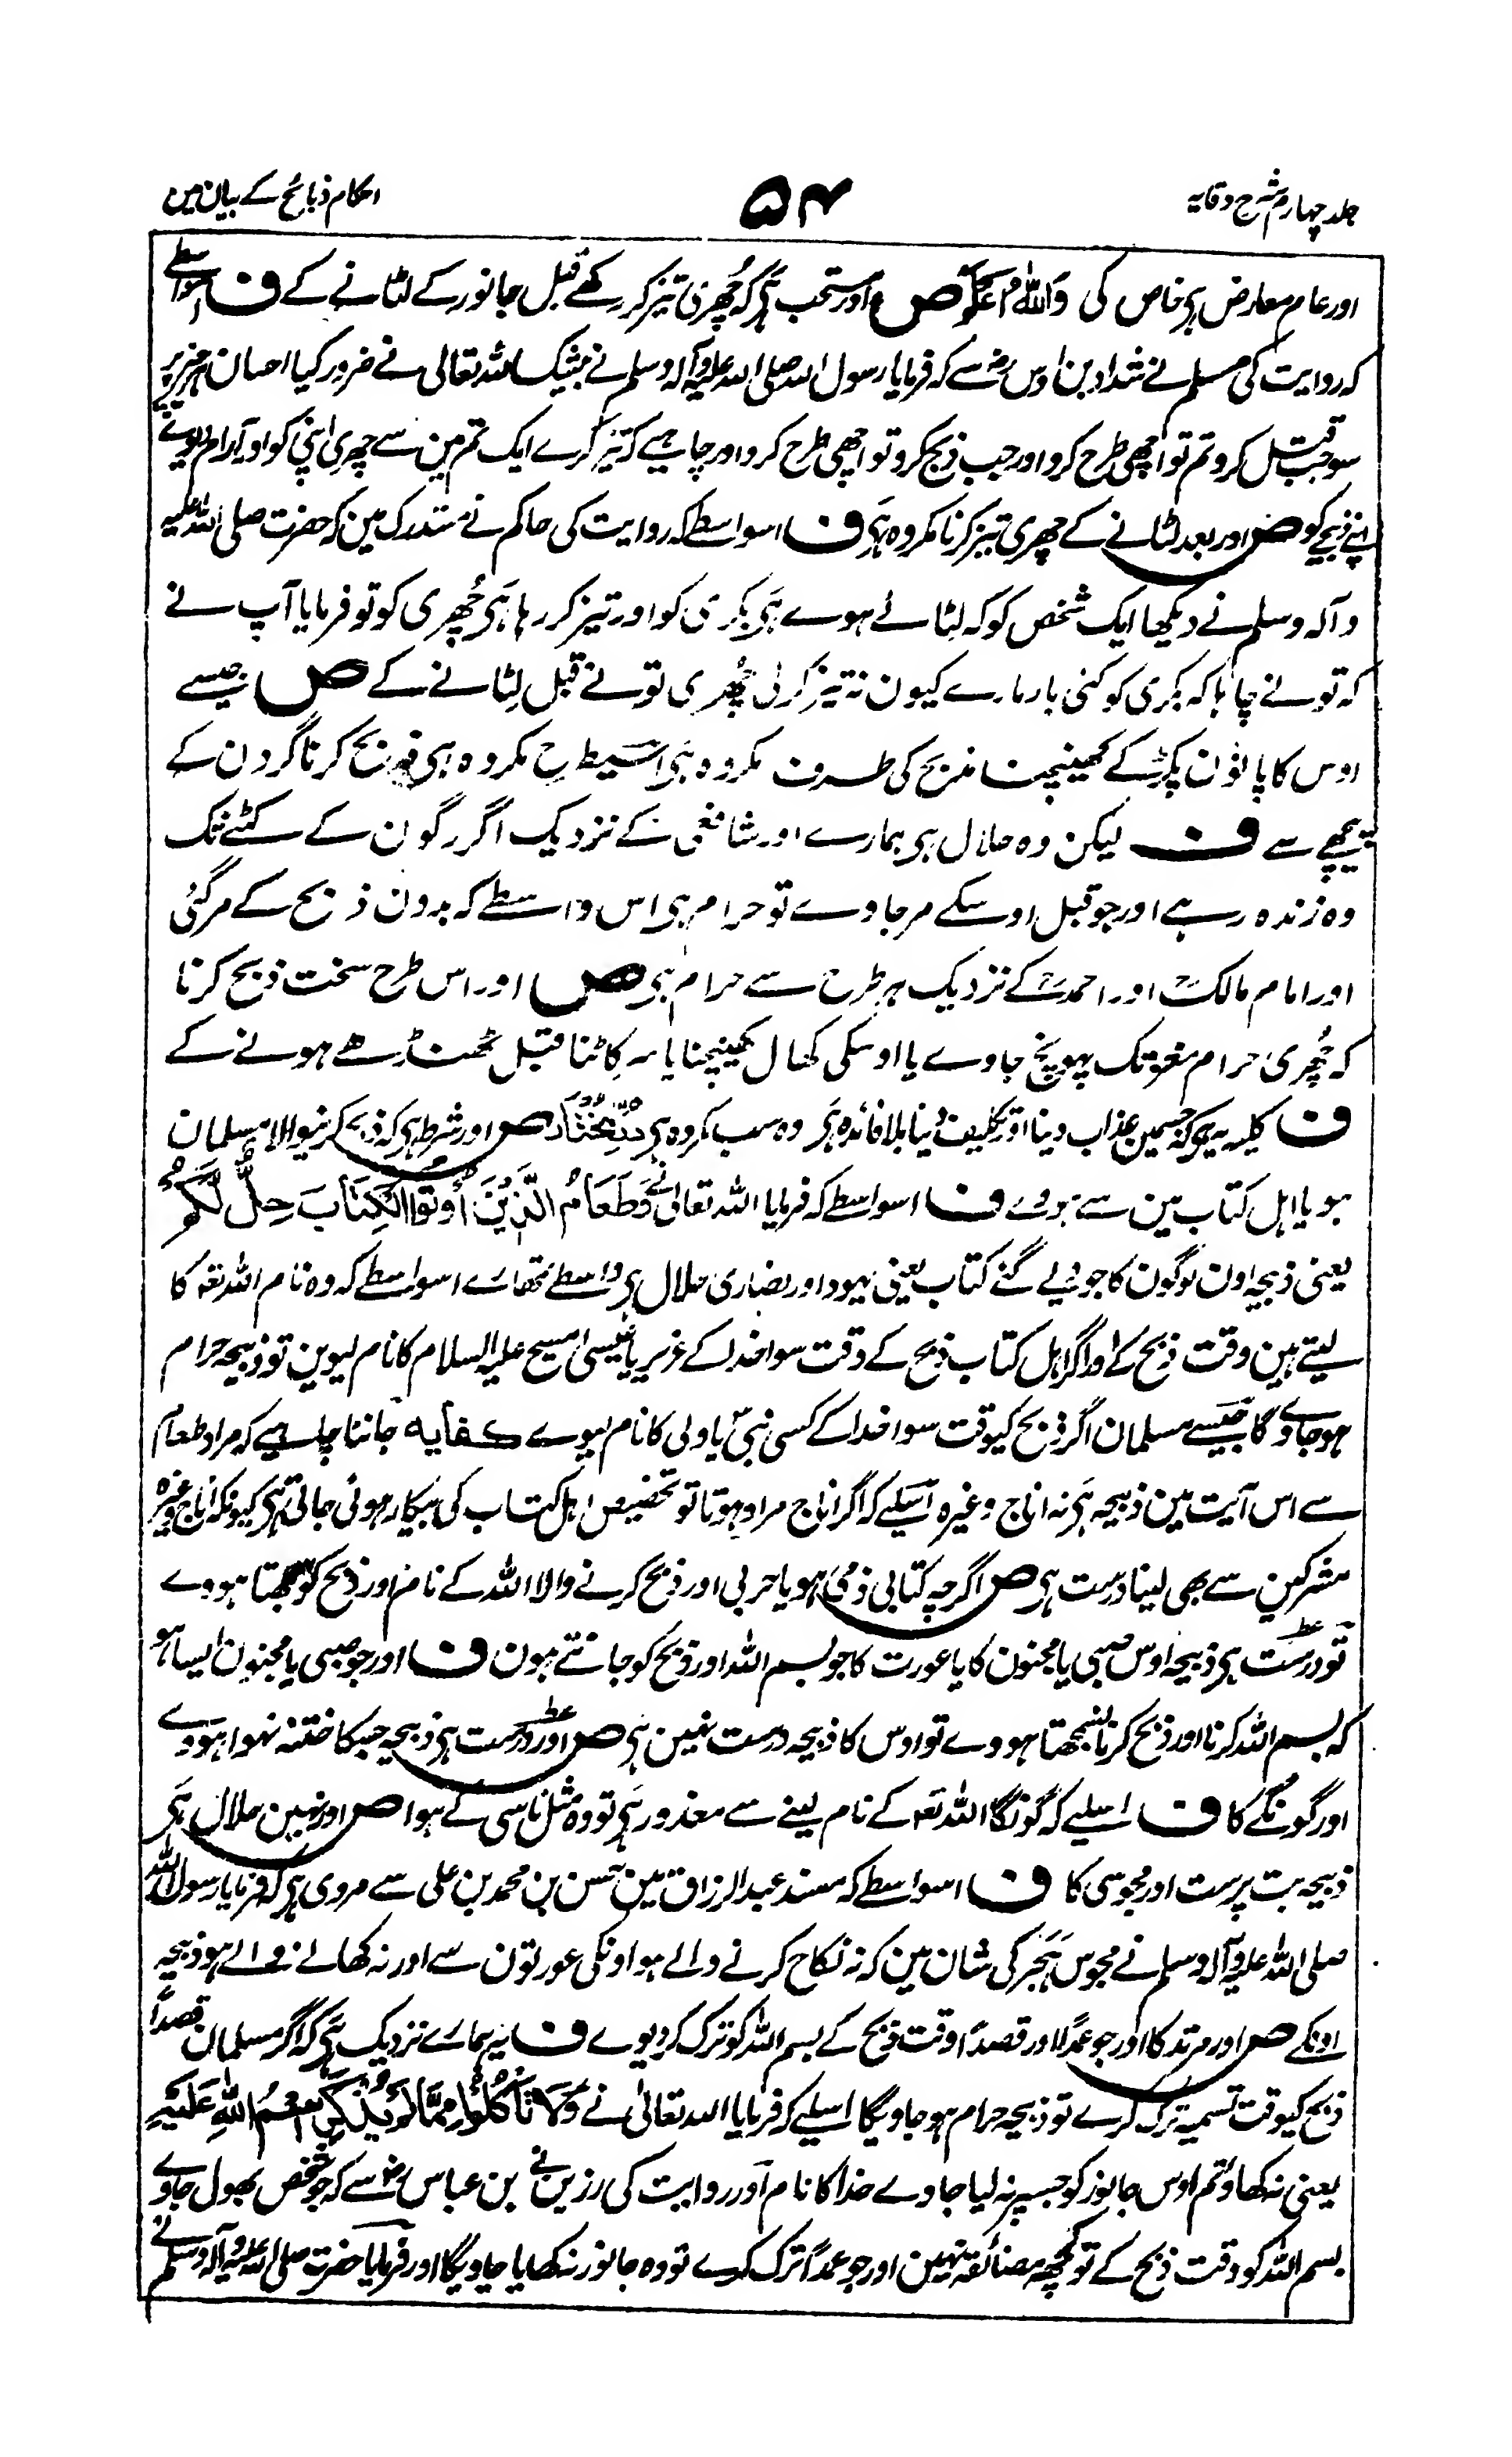 جلد چهارم شرح وقایہ
۵۴
احکام ذبائح کے بیان مین
اور عام معارض ہی خاص کی واللہ اعلم ص اور مستحب ہی کہ چُھری تیز کر رکھے قبل جانور کے لٹانے کے ف اسواسطے
کہ روایت کی مسلم نے شداد بن اوس رض سے کہ فرمایا رسول اللہ صلی اللہ علیہ وآلہ وسلم نے بیشک اللہ تعالی نے ضرور کیا احسان ہر چیز پر
سو جب قتل کرو تم تو اچھی طرح کرو اور جب ذبح کرو تو اچھی طرح کرو اور چاہیے کہ تیز کرے ایک تم مین سے چھری اپنی کو اور آرام دیوے
اپنے ذبیحے کو ص اور بعد لٹانے کے چھری تیز کرنا مکروہ ہی ف اسواسطے کہ روایت کی حاکم نے مستدرک مین کہ حضرت صلی اللہ علیہ
و آلہ وسلم نے دیکھا ایک شخص کو کہ لٹائے ہوے ہی بکری کو اور تیز کر رہا ہی چُھری کو تو فرمایا آپ نے
کہ تو نے چاہا کہ بکری کو کئی بار مارے کیون نہ تیز کر لی چُھری تو نے قبل لِٹانے کے ص جیسے
اوس کا پانون پکڑ کے کھینچنا مذبح کی طرف مکروہ ہی اسیطرح مکروہ ہی ذبح کرنا گردن کے
پیچھے سے ف لیکن وہ حلال ہی ہمارے اور شافعی کے نزدیک اگر رگون کے کٹنے تک
وہ زندہ رہے اور جو قبل اوسکے مر جاوے تو حرام ہی اس واسطے کہ بدون ذبح کے مر گئی
اور امام مالک اور احمد کے نزدیک ہر طرح سے حرام ہی ص اور اس طرح سخت ذبح کرنا
کہ چُھری حرام مغز تک پہونچ جاوے یا اوسکی کھال کھینچنا یا سر کاٹنا قبل ٹھنڈے ہونے کے
ف کلیہ یہ ہی کہ جسمین عذاب دینا اور تکلیف دینا بلا فائدہ ہی وہ سب مکروہ ہی درمختار ص اور شرط ہی کہ ذبح کرنیوالا مسلمان
ہو یا اہل کتاب مین سے ہووے ف اسواسطے کہ فرمایا اللہ تعالی نے وَطَعَامُ الَّذِیْنَ اُوْتُوا الْکِتَابَ حِلٌّ لَّکُمْ
یعنی ذبیحہ اون لوگون کا جو دیے گئے کتاب یعنی یہود اور نصاری حلال ہی واسطے تمھارے اسواسطے کہ وہ نام اللہ تعہ کا
لیتے ہین وقت ذبح کے اور اگر اہل کتاب ذبح کے وقت سوا خدا کے عزیر یا عیسیٰ مسیح علیہ السلام کا نام لیوین تو ذبیحہ حرام
ہو جاوے گا جیسے مسلمان اگر ذبح کیوقت سوا خدا کے کسی نبی یا ولی کا نام لیوے کفایہ جاننا چاہیے کہ مراد طعام
سے اس آیت مین ذبیحہ ہی نہ اناج وغیرہ اسلیے کہ اگر اناج مراد ہوتا تو تخصیص اہل کتاب کی بیکار ہوئی جاتی ہی کیونکہ اناج وغیرہ
مشرکین سے بھی لینا درست ہی ص اگرچہ کتابی ذمی ہو یا حربی اور ذبح کرنے والا اللہ کے نام اور ذبح کو سمجھتا ہووے
تو درست ہی ذبیحہ اوس صبی یا مجنون کا یا عورت کا جو بسم اللہ اور ذبح کو جانتے ہون ف اور جو صبی یا مجنون ایسا ہو
کہ بسم اللہ کرنا اور ذبح کرنا نسمجھتا ہووے تو اوس کا ذبیحہ درست نہین ہی ص اور درست ہی ذبیحہ جسکا ختنہ نہوا ہووے
اور گونگے کا ف اسلیے کہ گونگا اللہ تعہ کے نام لینے سے معذور ہی تو وہ مثل ناسی کے ہوا ص اور نہین حلال ہی
ذبیحہ بت پرست اور مجوسی کا ف اسواسطے کہ مسند عبد الرزاق مین حسن بن محمد بن علی سے مروی ہی کہ فرمایا رسول اللہ
صلی اللہ علیہ وآلہ وسلم نے مجوس ہَجَر کی شان مین کہ نہ نکاح کرنے والے ہو اونکی عورتون سے اور نہ کھانے والے ہو ذبیحہ
اونکے ص اور مرتد کا اور جو عمدًا اور قصدًا وقت ذبح کے بسم اللہ کو ترک کر دیوے ف یہ ہمارے نزدیک ہی کہ اگر مسلمان قصدًا
ذبح کیوقت تسمیہ ترک کرے تو ذبیحہ حرام ہو جاویگا اسلیے کہ فرمایا اللہ تعالیٰ نے وَلَا تَاْکُلُوْا مِمَّا لَمْ یُذْکَرِ اسْمُ اللّٰہِ عَلَیْہِ
یعنی نہ کھاؤ تم اوس جانور کو جسپر نہ لیا جاوے خدا کا نام اور روایت کی رزین نے بن عباس رض سے کہ جو شخص بھول جاوے
بسم اللہ کو وقت ذبح کے تو کچھ مضائقہ نہین اور جو عمدًا ترک کرے تو وہ جانور نہ کھایا جاویگا اور فرمایا حضرت صلی اللہ علیہ وآلہ وسلم نے